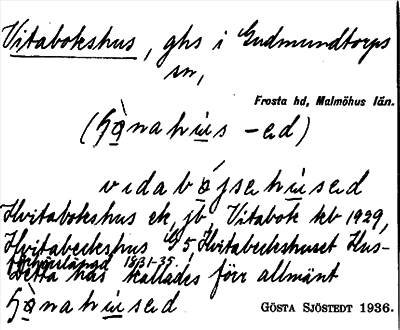 Vitabokshus, ghs i Gudmundtorps
sn,
Frosta hd, Malmöhus län.
(hò̱nahu̱s -ed)
vidabo̱jsehu̱sed
Hvitabokshus ek, jb. Vitabok kb 1929,
Hvitabeckshus G 5, Hvitabeckshuset Hus-
förhörslängd 1831-35.
Detta hus kallades förr allmänt
ho̱nahu̱sed
GÖSTA SJÖSTEDT 1936.